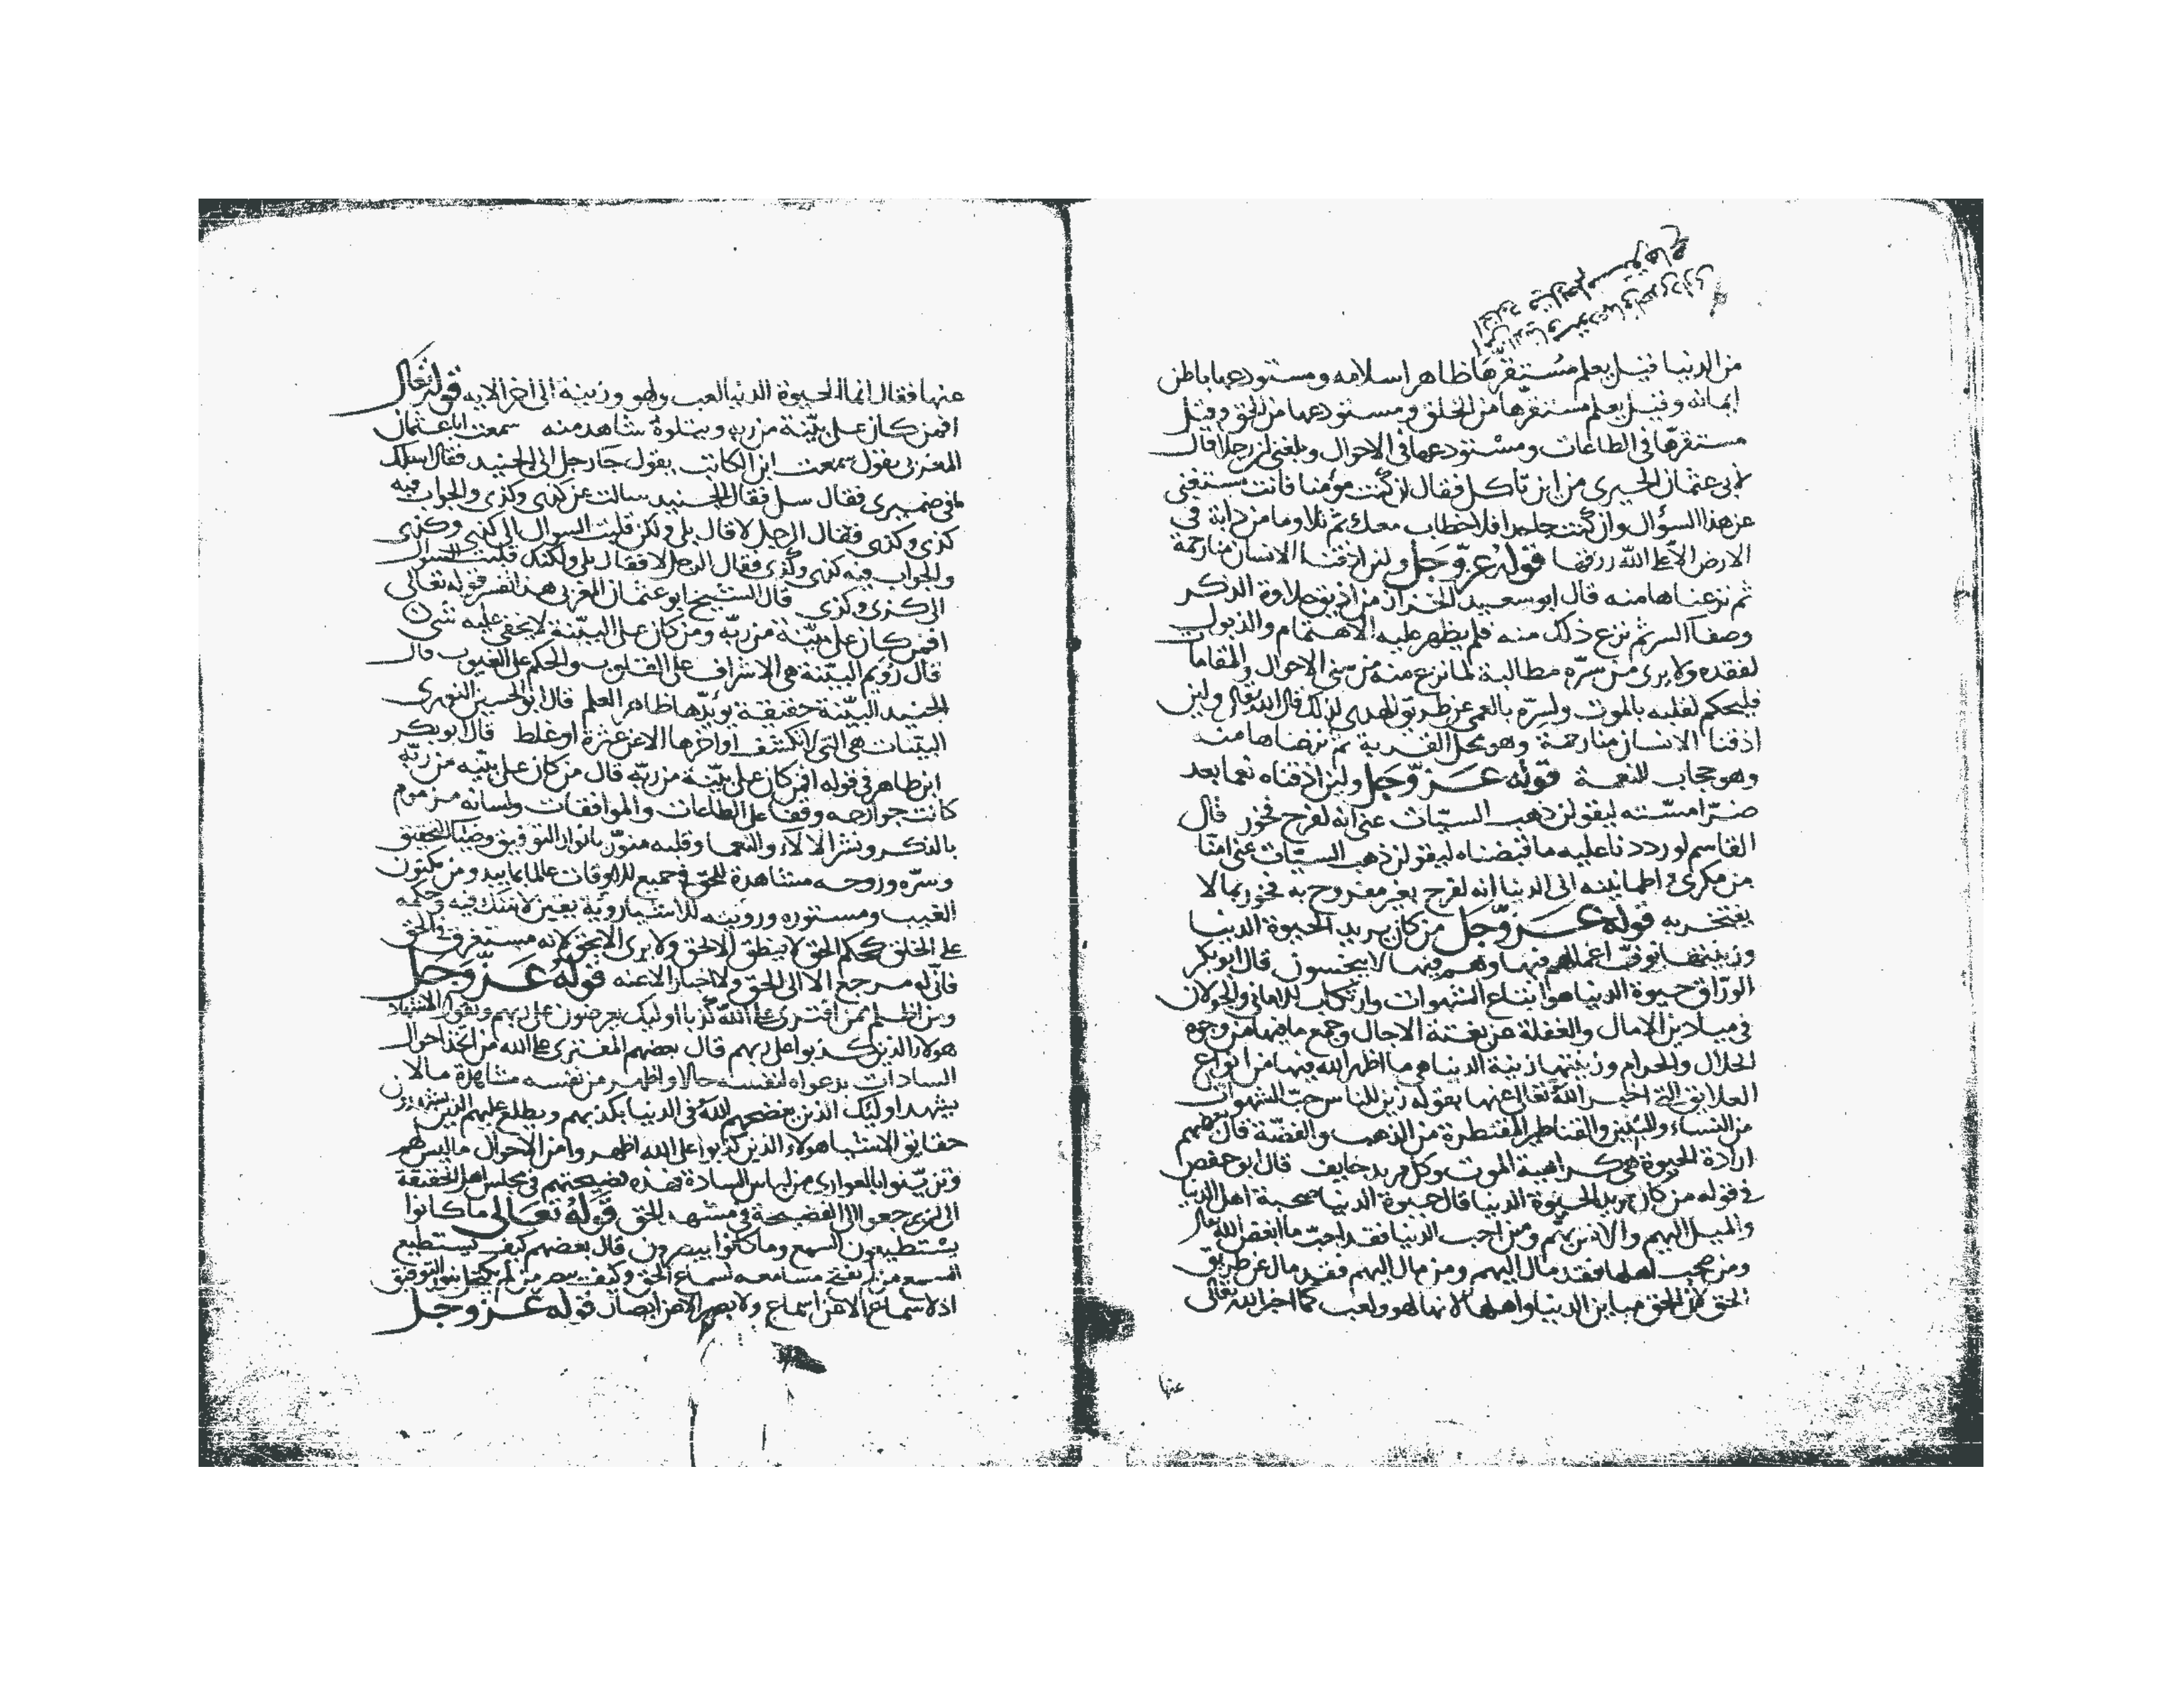 من الدنيا قيل يعلم مستقرّها ظاهر اسلامه ومستودعها باطن
ايمانه وقيل يعلم مستقرّها من الخلق ومستودعها من الحق وقيل
مستقرّها في الطاعات ومستودعها في الاحوال وبلغني ان رجلا قال
لابي عثمان الحيري من اين تاكل فقال ان كنت مؤمنا فانت مستغني
عن هذا السؤال وان كنت جاحدا فلا خطاب معك ثم تلا وما من دابة في
الارض الا على الله رزقها قوله عزّ وجلّ ولئن اذقنا الانسان منا رحمة
ثم نزعناها منه قال ابو سعيد الخراز من اذيق حلاوة الذكر
وصفا السر ثم نزع ذلك منه فلم يظهر عليه الاهتمام والذبول
لفقده ولا يرى من سرّه مطالبة لما نزع منه من سني الاحوال والمقامات
فليحكم لقلبه بالموت ولسرّه بالعمى عن طريق الهدى لذلك قال الله تعالى ولئن
اذقنا الانسان منا رحمة وهو محل القربة ثم نزعناها منه
وهو حجاب النعمة قوله عزّ وجلّ ولئن اذقناه نعما بعد
ضرّا مسّته ليقولن ذهب السيّات عني انه لفرح فخور قال
القاسم لو رددنا عليه ما قبضناه ليقولن ذهب السيّات عني امنا
من مكري واطمانينه الى الدنيا انه لفرح بغير مفروح به فخور بما لا
يفتخر به قوله عزّ وجلّ من كان يريد الحيوة الدنيا
وزينتها نوفّ اعمالهم فيها وهم فيها لا يبخسون قال ابو بكر
الورّاق حيوة الدنيا هو اتباع الشهوات وارتكاب الاماني والجولان
في ميادين الامال والغفلة عن بغتة الاجال وجمع ما فيها من وجوه
الحلال والحرام وزينتها زينة الدنيا هي ما اظهر الله فيها من انواع
العلايق التي اخبر الله تعالى عنها بقوله زين للناس حبّ الشهوات
من النساء والبنين والقناطير المقنطرة من الذهب والفضّة قال بعضهم
ارادة الحيوة هي كراهية الموت وكل مريد خايف قال ابو حفص
في قوله من كان يريد الحيوة الدنيا قال حيوة الدنيا صحبة اهل الدنيا
والميل اليهم والانس بهم ومن احب الدنيا فقد احبّ ما ابغض الله تعالى
ومن صحب اهلها فقد مال اليهم ومن مال اليهم فقد مال عن طريق
الحق لان الحق مباين الدنيا واهلها لانها لهو ولعب كما اخبر الله تعالى
عنها
عنها فقال انما الحيوة الدنيا لعب ولهو وزينة الى اخر الايه قوله تعالى
افمن كان على بيّنة من ربه ويتلوه شاهد منه سمعت ابا عثمان
المغربي يقول سمعت ابن الكاتب يقول جا رجل الى الجنيد فقال اسلك
ما في ضميري فقال سل فقال الجنيد سالت عن كذى وكذى والجواب فيه
كذى وكذى فقال الرجل لا قال بلى ولكن قلبت السوال الى كذى وكذى
والجواب فيه كذى وكذى فقال الرجل لا فقال بلى ولكنك قلبت السوال
الى كذى وكذى قال الشيخ ابو عثمان المغربي هذا تفسير قوله تعالى
افمن كان على بيّنة من ربّه ومن كان على البيّنة لا يخفى عليه شئ
قال رويم البيّنة هي الاشراف على القلوب والحكم على الغيوب قال
الجنيد البيّنة حقيقة يؤيدّها ظاهر العلم قال ابو الحسين النوري
البيّنات هي التي لا تكشف اواخرها الا عن عثرة او غلط قال ابو بكر
ابن طاهر في قوله افمن كان على بيّنة من ربّه قال من كان على بيّنه من ربّه
كانت جوارحه وقفا على الطاعات والموافقات ولسانه مزموم
بالذكر ونشر الالاء والنعما وقلبه منوّر بانوار التوفيق وضيا التحقيق
وسرّه وروحه مشاهدة للحق في جميع الاوقات عالما بما يبدو من مكنون
الغيب ومستوره ورويته للاشيا روية يقين لا شك فيه وحكمه
على الخلق كحكم الحق لا ينطق الا بحق ولا يرى الا بحق لانه مستغرق في الحق
فانّى له مرجع الا الى الحق ولا اخبار الا عنه قوله عزّ وجلّ
ومن اظلم ممن افترى على الله كذبا اوليك يعرضون على ربهم ويقول الاشهاد
هولاء الذين كذبوا على ربهم قال بعضهم المفتري على الله من اتخذ احوال
السادات بدعواه لنفسه حالا واظهر من نفسه مشاهدة ما لا ان
يشهد اوليك الذين يفضحهم الله في الدنيا بكذبهم ويطلع عليهم الذين يشهدون
حقايق الاشيا هولاء الذين كذبوا على الله اظهروا من الاحوال ما ليس لهم
وتزيّنوا بالعواري من لباس السادة فهذه فضيحتهم في مجلس اهل الحقيقة
الى ان يرجعوا الى الفضيحة في مشهد الحق قوله تعالى ما كانوا
يستطيعون السمع وما كانوا يبصرون قال بعضهم كيف يستطيع
السمع من لم يفتح مسامعه لسماع الحق وكيف يبصر من لم يكتحل بنور التوفيق
اذ لا سماع الا عن اسماع ولا بصر الا عن ابصار قوله عزّ وجلّ